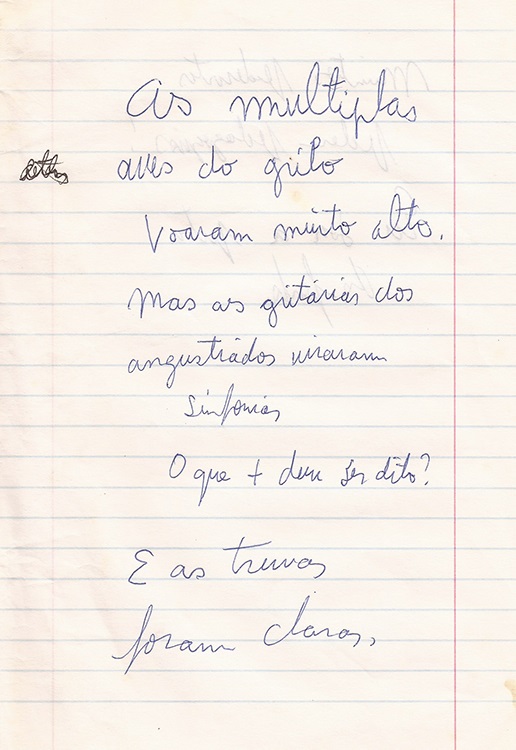 As multiplas
aves do grito
Voaram muito alto.
Mas as gritárias dos
angustiados viraram
sinfonias
O que + deve ser dito?
E as trevas
foram claras,